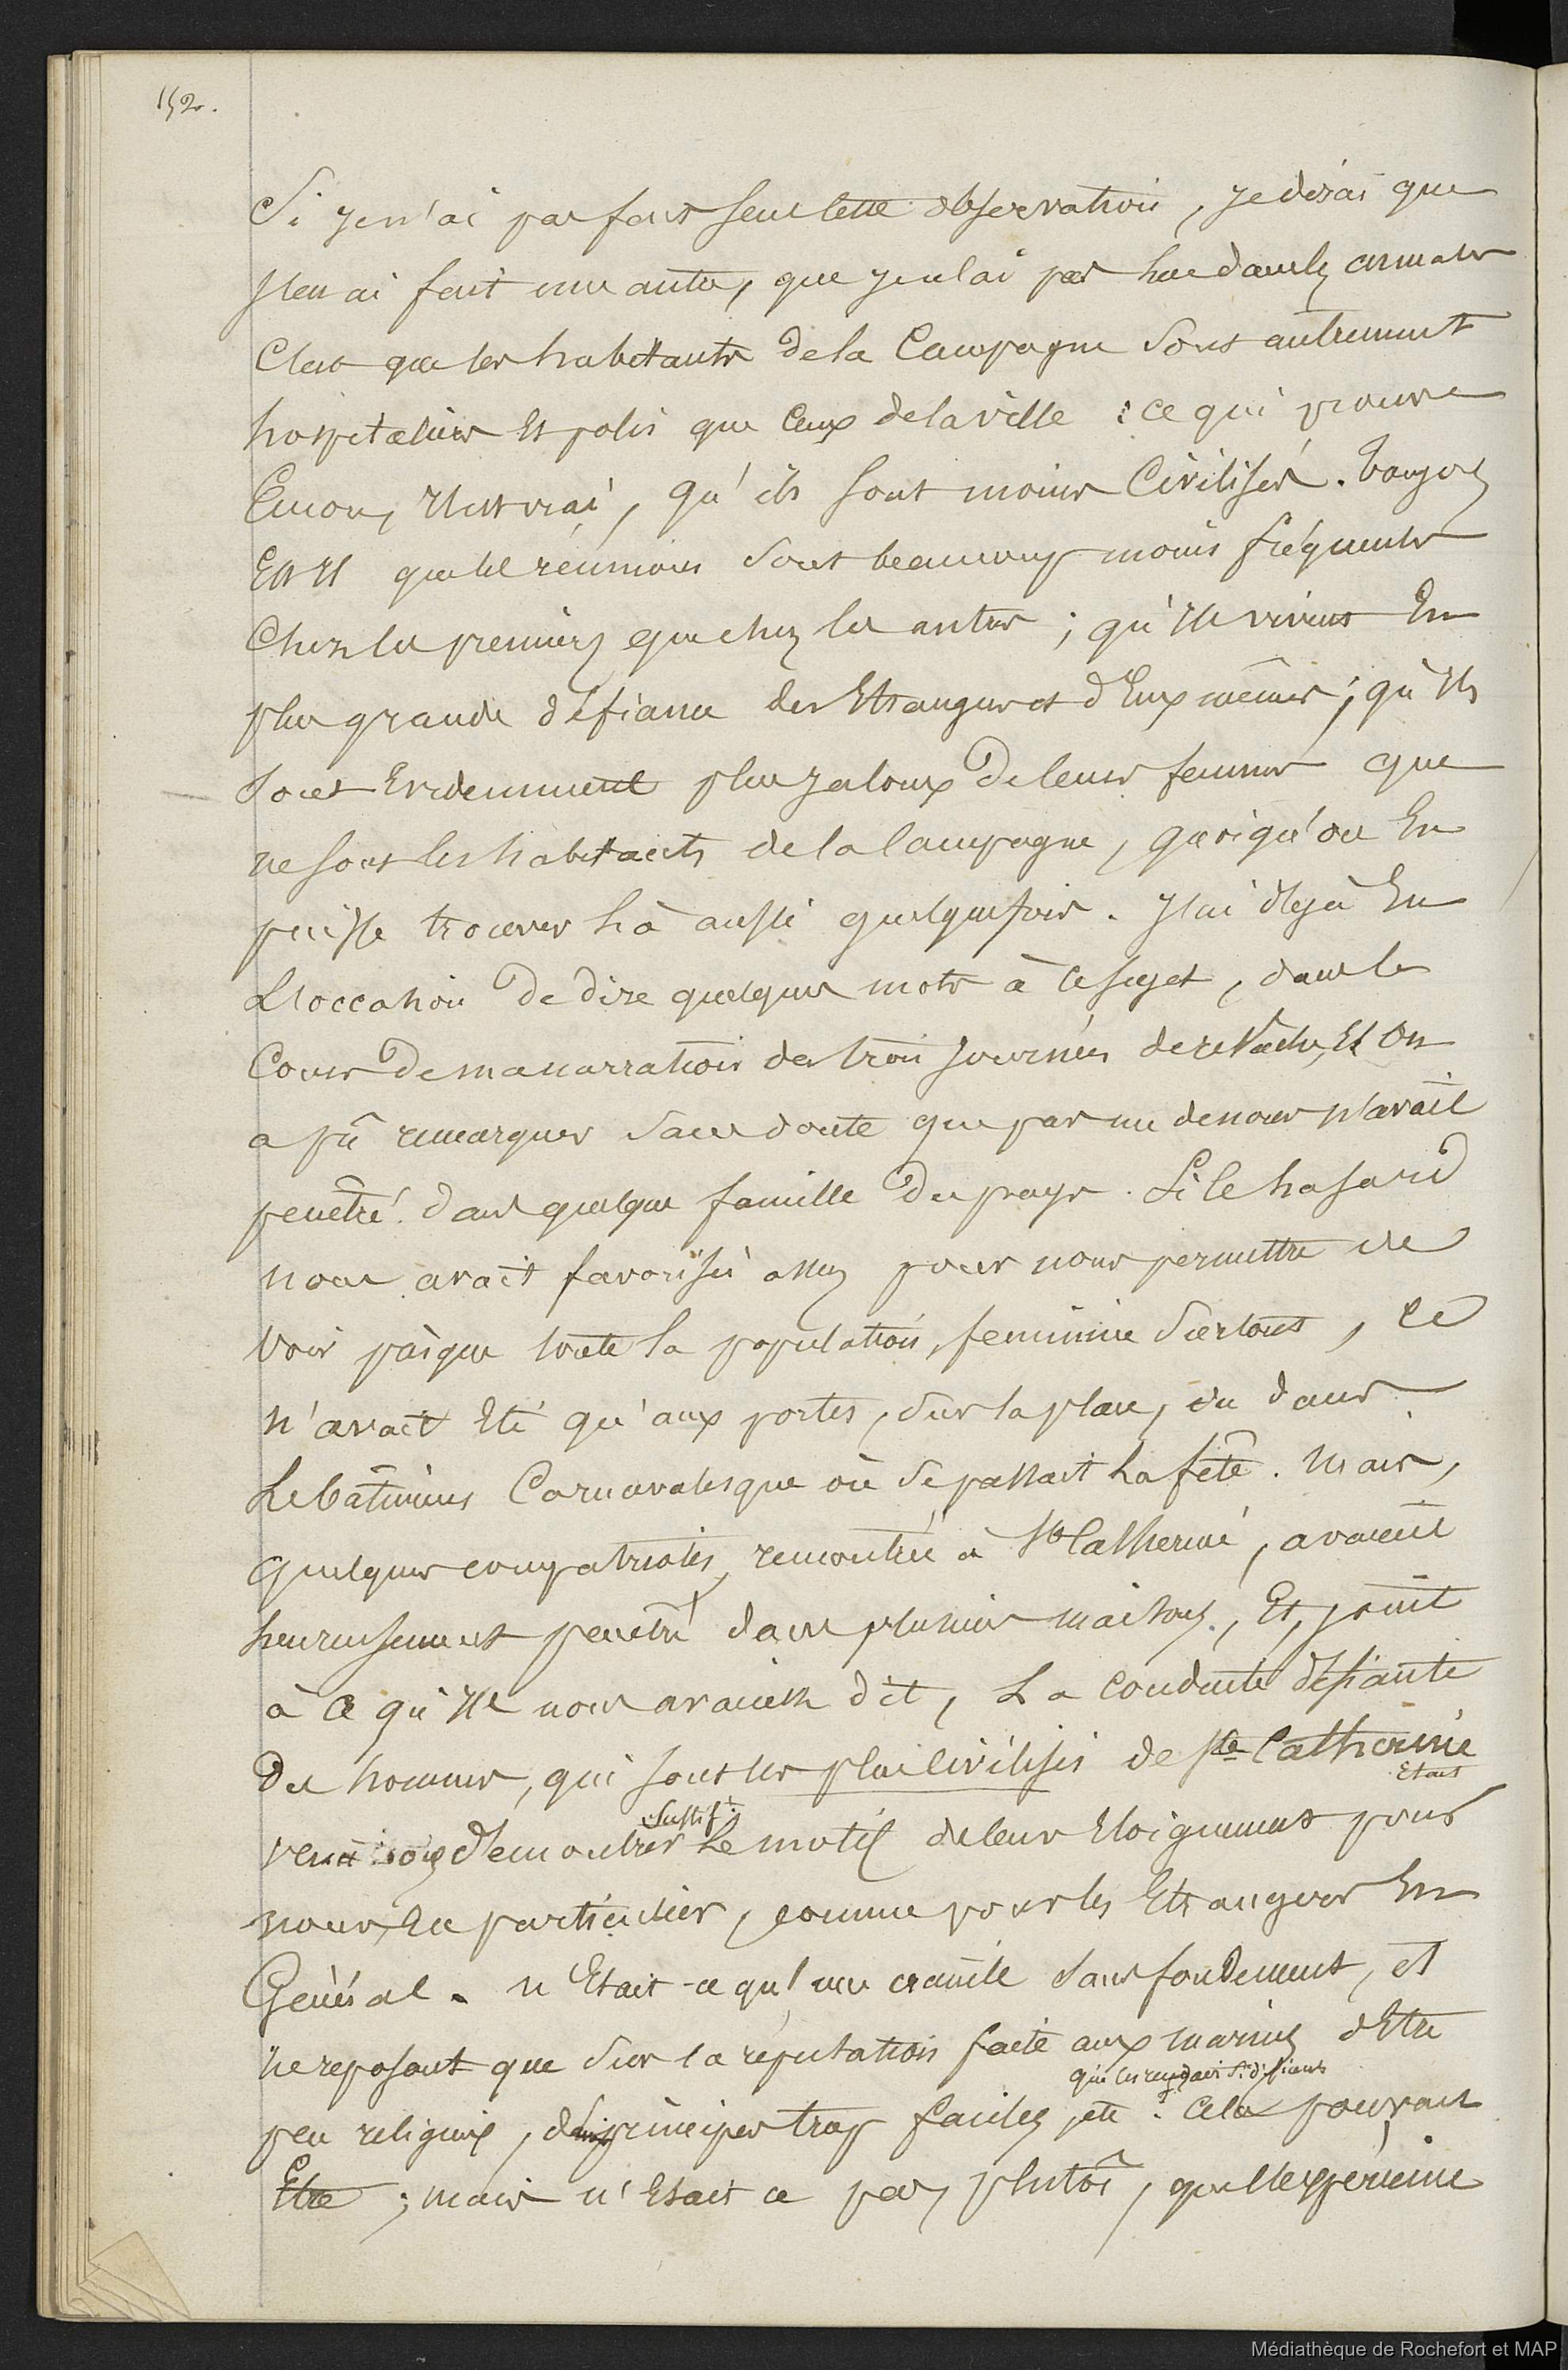 152.
Si je n'ai pas fait seul cette observation, je dirai que
j'en ai fait une autre, que je n'ai pas lue dans les annales
C'est que les habitants de la Campagne sont autrement
hospitaliers et polis que Ceux de la ville : ce qui prouve
Encore, il est vrai, qu'ils sont moins Civilisés. Toujours
Est il que les réunions sont beaucoup moins fréquentes
Chez les premiers que chez les autres ; qu'ils vivent En
plus grande défiance des Etrangers et d'Eux mêmes ; qu'ils
sont Evidemment plus jaloux de leurs femmes que
ne sont les habitants de la Campagne, quoiqu'on En
puisse trouver là aussi quelquefois. J'ai déjà Eu
L'occasion de dire quelques mots à ce sujet, dans le
Cours de ma narration des trois journées de relâche, Et On
a pû remarquer sans doute que pas un de nous n'avait
penetré dans quelque famille du pays. Si le hasard
nous avait favorisés assez pour nous permettre de
voir presque toute la population, feminine surtout, ce
n'avait Eté qu'aux portes, sur la place, ou dans
Le bâtiment Carnavalesque où se passait La fête. Mais,
quelques compatriotes, rencontrés à Ste Catherine, avaient
heureusement penetré dans plusieurs maisons, Et, joint
à ce qu'ils nous avaient dit, La conduite défiante
des hommes, qui sont les plus civilisés de Ste Catherine
Etait
suffist
demontrer Le motif de leur Eloignement pour
nous, En particulier, comme pour les Etrangers En
Général. N'Etait-ce qu'une crainte sans fondement, et
ne reposant que sur la réputation faite aux marins d'Etre
qui les rendait si défiants
peu religieux, de principes trop faciles, etc ? Cela pouvait
Etre ; mais n'Etait ce pas, plutôt, que l'expérience
Médiathèque de Rochefort et MAP